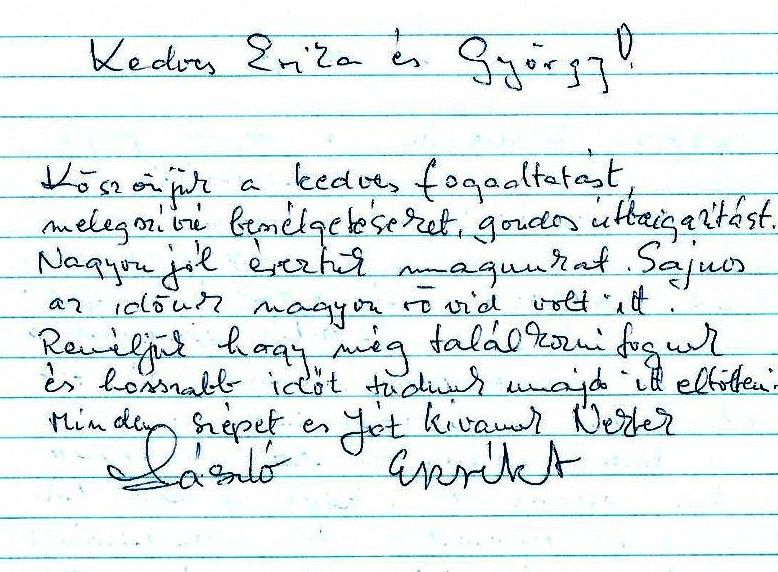 Kedves Erika és György!
Köszönjük a kedves fogadtatást,
melegszívü beszélgetéseket, gondos útbaigazitást.
Nagyon jól éreztük magunkat. Sajnos
az időnk nagyon rövid volt itt.
Reméljük hogy még találkozni fogunk
és hosszabb időt tudunk majd itt eltölteni.
Minden szépet es Jót kivanok Nektek
László